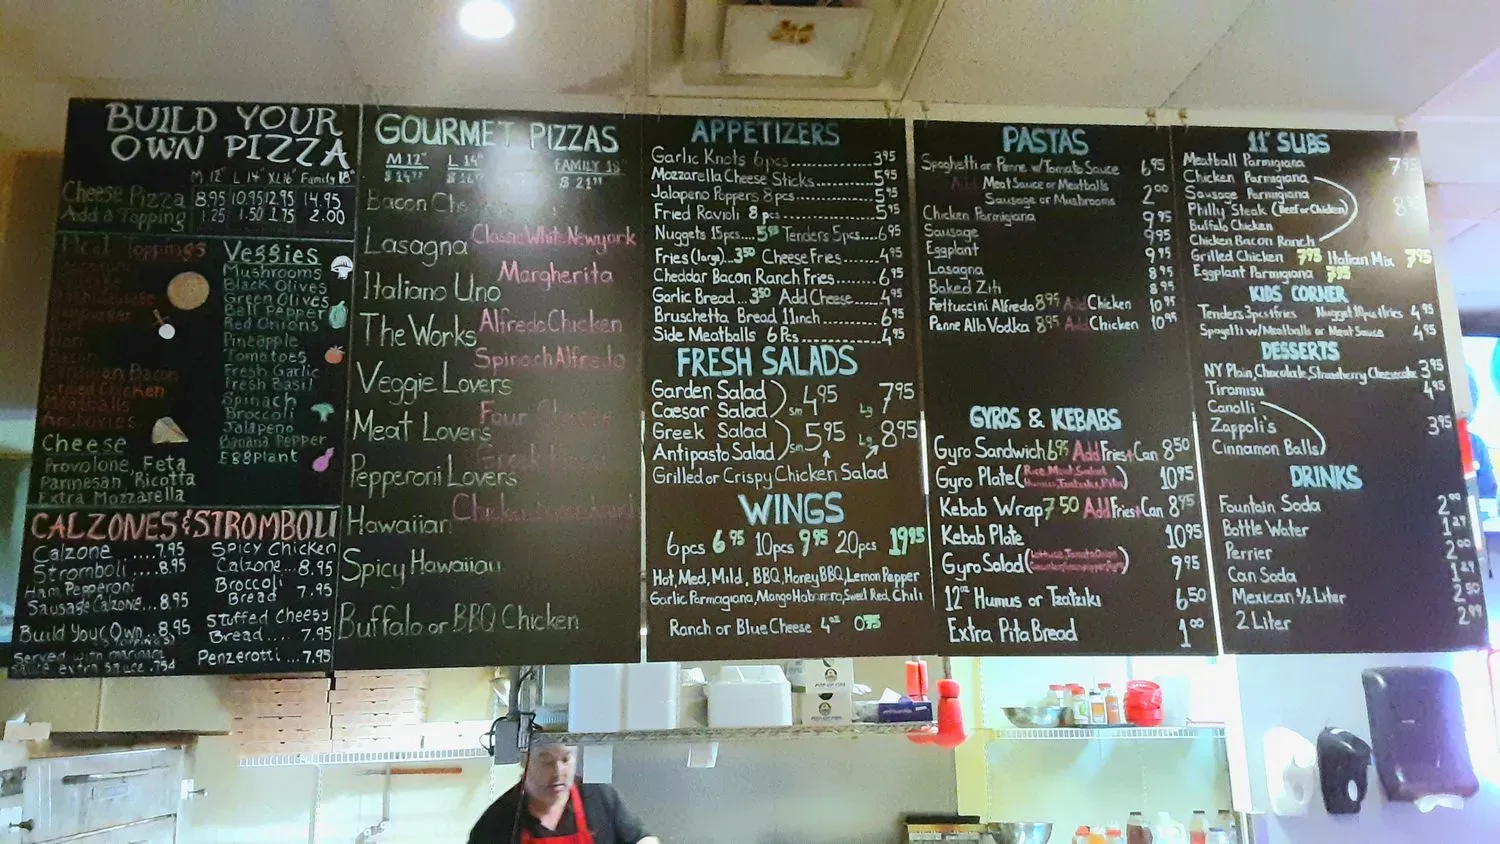 BUILD YOUR
OWN PIZZA
M 12" L 14" XL 16" Family 18"
Cheese Pizza 8.95 10.95 12.95 14.95
Add a Topping 1.25 1.50 1.75 2.00
Meat Toppings
Hamburger
Ham
Bacon
Canadian Bacon
Grilled Chicken
Meatballs
Anchovies
Cheese
Provolone, Feta
Parmesan, Ricotta
Extra Mozzarella
Veggies
Mushrooms
Black Olives
Green Olives
Bell Pepper
Red Onions
Pineapple
Tomatoes
Fresh Garlic
Fresh Basil
Spinach
Broccoli
Jalapeno
Banana Pepper
Eggplant
CALZONES & STROMBOLI
Calzone .....7.95
Stromboli .....8.95
Ham Pepperoni
Sausage Calzone...8.95
Build Your Own...8.95
Served with marinara
sauce extra sauce .75¢
Spicy Chicken
Calzone...8.95
Broccoli
Bread 7.95
Stuffed Cheesy
Bread.... 7.95
Penzerotti ...7.95
GOURMET PIZZAS
M 12" L 14" FAMILY 18"
$ 21
Bacon
Lasagna Classic White Newyork
Margherita
Italiano Uno
The Works Alfredo Chicken
Spinach Alfredo
Veggie Lovers
Four Cheese
Meat Lovers
Pepperoni Lovers
Hawaiian
Spicy Hawaiian
Buffalo or BBQ Chicken
APPETIZERS
Garlic Knots 6 pcs 3.95
Mozzarella Cheese Sticks 5.95
Jalapeno Poppers 8 pcs 5.95
Fried Ravioli 8 pcs 5.95
Nuggets 15pcs....5.95 Tenders 5pcs...6.95
Fries (large)..3.50 Cheese Fries 4.95
Cheddar Bacon Ranch Fries 6.95
Garlic Bread...3.50 Add Cheese 4.95
Bruschetta Bread 11inch 6.95
Side Meatballs 6 Pcs 4.95
FRESH SALADS
Garden Salad
Caesar Salad sm 4.95 Lg 7.95
Greek Salad
Antipasto Salad sm 5.95 Lg 8.95
Grilled or Crispy Chicken Salad
WINGS
6pcs 6.95 10pcs 9.95 20pcs 19.95
Hot, Med, Mild, BBQ, Honey BBQ, Lemon Pepper
Garlic Parmagiana, Mango Habanero, Sweet Red Chili
Ranch or Blue Cheese 4oz 0.75
PASTAS
Spaghetti or Penne w/Tomato Sauce 6.95
Add Meat Sauce or Meatballs
Sausage or Mushrooms 2.00
Chicken Parmigiana 9.95
Sausage 9.95
Eggplant 9.95
Lasagna 8.95
Baked Ziti 8.95
Fettuccini Alfredo 8.95 Add Chicken 10.95
Penne Alla Vodka 8.95 Add Chicken 10.95
GYROS & KEBABS
Gyro Sandwich 6.95 Add Fries+Can 8.50
Gyro Plate (Rice, Meat, Salad, Hummus, Tzatziki, Pita) 10.95
Kebab Wrap 7.50 Add Fries+Can 8.95
Kebab Plate 10.95
Gyro Salad 9.95
12oz Humus or Tzatziki 6.50
Extra Pita Bread 1.00
11" SUBS
Meatball Parmigiana 7.95
Chicken Parmigiana
Sausage Parmigiana
Philly Steak (Beef or Chicken)
Buffalo Chicken
Chicken Bacon Ranch
Grilled Chicken 7.95 Italian Mix 7.95
Eggplant Parmigiana 7.95
KIDS CORNER
Tenders 3pcs+fries Nugget 10pcs+fries 4.95
Spagetti w/Meatballs or Meat Sauce 4.95
DESSERTS
NY Plain, Chocolate, Strawberry Cheesecake 3.95
Tiramisu 4.95
Canolli
Zappoli's 3.95
Cinnamon Balls
DRINKS
Fountain Soda 2.00
Bottle Water 1.29
Perrier 2.00
Can Soda 1.29
Mexican 1/2 Liter 2.50
2 Liter 2.99